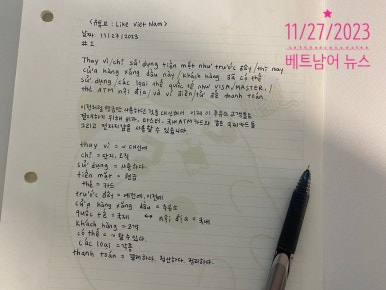 11/27/2023
베트남어 뉴스
Like Viet Nam>
날짜 11/27/2023
#1
Thay vì / chỉ sử dụng tiền mặt như trước đây / thì nay
cửa hàng xăng dầu này / khách hàng đã có thể
sử dụng / các loại thẻ quốc tế như VISA/MASTER. /
thẻ ATM nội địa / và ví điện tử để thanh toán.
이전처럼 현금만 사용하는 것을 대신해서 이제 이 주유소 고객들은
결제하기 위해 비자, 마스터, 국내 ATM카드와 같은 카드들
그리고 전자지갑을 사용할 수 있습니다.
thay vì = ~ 대신에
chỉ = 단지, 오직
sử dụng = 사용하다.
tiền mặt = 현금
thẻ = 카드
trước đây = 예전에, 이전에
cửa hàng xăng dầu = 주유소
quốc tế = 국제 ↔ nội địa = 국내
khách hàng = 고객
có thể = ~ 할 수 있다.
các loại = 각종
thanh toán = 결제하다, 정산하다, 정리하다.